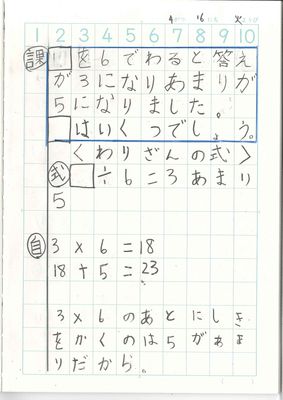 4がつ 16にち 火ようび
1 2 3 4 5 6 7 8 9 10
課 □を6でわると答え
が3になりあまりが
5になりました。
□はいくつでしょう。
<わりざんの式>
式 □÷6=3あまり
5
自 3×6=18
18+5=23
3×6のあとにしき
をかくのは5があま
りだから。